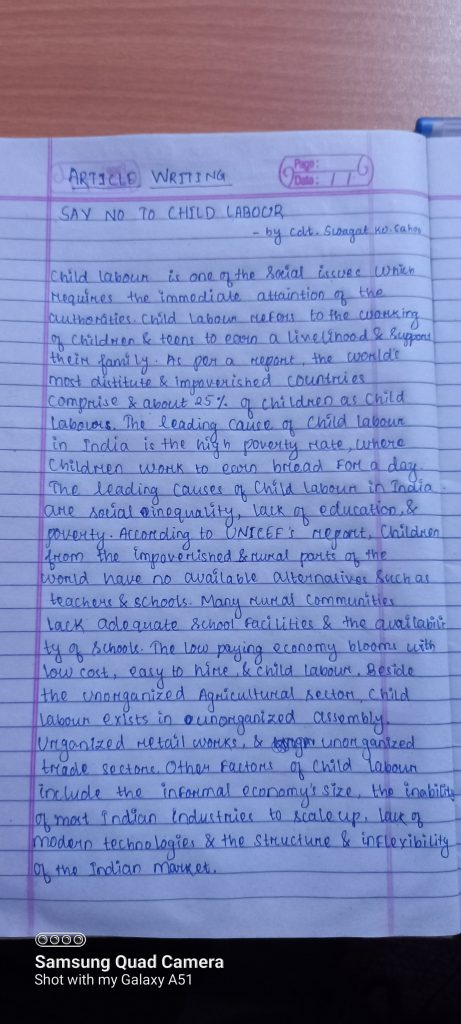 ARTICLE WRITING
Page:
Date: / /
SAY NO TO CHILD LABOUR
- by Cdt. Swagat KU. Sahoo
Child labour is one of the Social issues which
requires the immediate attaintion of the
authorities. Child labour refers to the working
of children & teens to earn a livelihood & Support
their family. As per a report, the world's
most distitute & impoverished countries
comprise & about 25% of children as child
labours. The leading cause of child labour
in India is the high poverty rate, where
Children work to earn bread for a day.
The leading causes of Child labour in India
are social inequality, lack of education, &
poverty. According to UNICEF's report, Children
from the impoverished & rural parts of the
world have no available alternatives such as
teachers & schools. Many rural communities
lack adequate school facilities & the availabili-
ty of schools. The low paying economy blooms with
low cost, easy to hire, & child labour. Beside
the unorganized Agricultural sector, Child
labour exists in unorganized assembly.
Unganized retail works, & unorganized
trade sectors. Other factors of child labour
include the informal economy's size, the inability
of most Indian industries to scale up, lack of
modern technologies & the structure & inflexibility
of the Indian market.
Samsung Quad Camera
Shot with my Galaxy A51